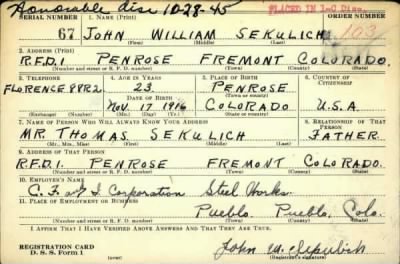 Honorable disc 10-28-45
PLACED IN 1-C Disc.
SERIAL NUMBER 1. NAME (Print) ORDER NUMBER
67 JOHN WILLIAM SEKULICH 103
(First) (Middle) (Last)
2. ADDRESS (Print)
R.F.D.1. PENROSE FREMONT COLORADO.
(Number and street or R. F. D. number) (Town) (County) (State)
3. TELEPHONE 4. AGE IN YEARS 5. PLACE OF BIRTH 6. COUNTRY OF CITIZENSHIP
FLORENCE 98R2 23 PENROSE
(Town or county)
DATE OF BIRTH
NOV. 17 1916 COLORADO U.S.A.
(Exchange) (Number) (Mo.) (Day) (Yr.) (State or country)
7. NAME OF PERSON WHO WILL ALWAYS KNOW YOUR ADDRESS 8. RELATIONSHIP OF THAT PERSON
MR. THOMAS SEKULICH FATHER.
(Mr., Mrs., Miss) (First) (Middle) (Last)
9. ADDRESS OF THAT PERSON
R.F.D.1. PENROSE FREMONT COLORADO.
(Number and street or R. F. D. number) (Town) (County) (State)
10. EMPLOYER'S NAME
C. F. & I Corporation Steel Works.
11. PLACE OF EMPLOYMENT OR BUSINESS
Pueblo. Pueblo. Colo.
(Number and street or R. F. D. number) (Town) (County) (State)
I AFFIRM THAT I HAVE VERIFIED ABOVE ANSWERS AND THAT THEY ARE TRUE.
REGISTRATION CARD
D. S. S. Form 1
John W. Sekulich
(Registrant's signature)